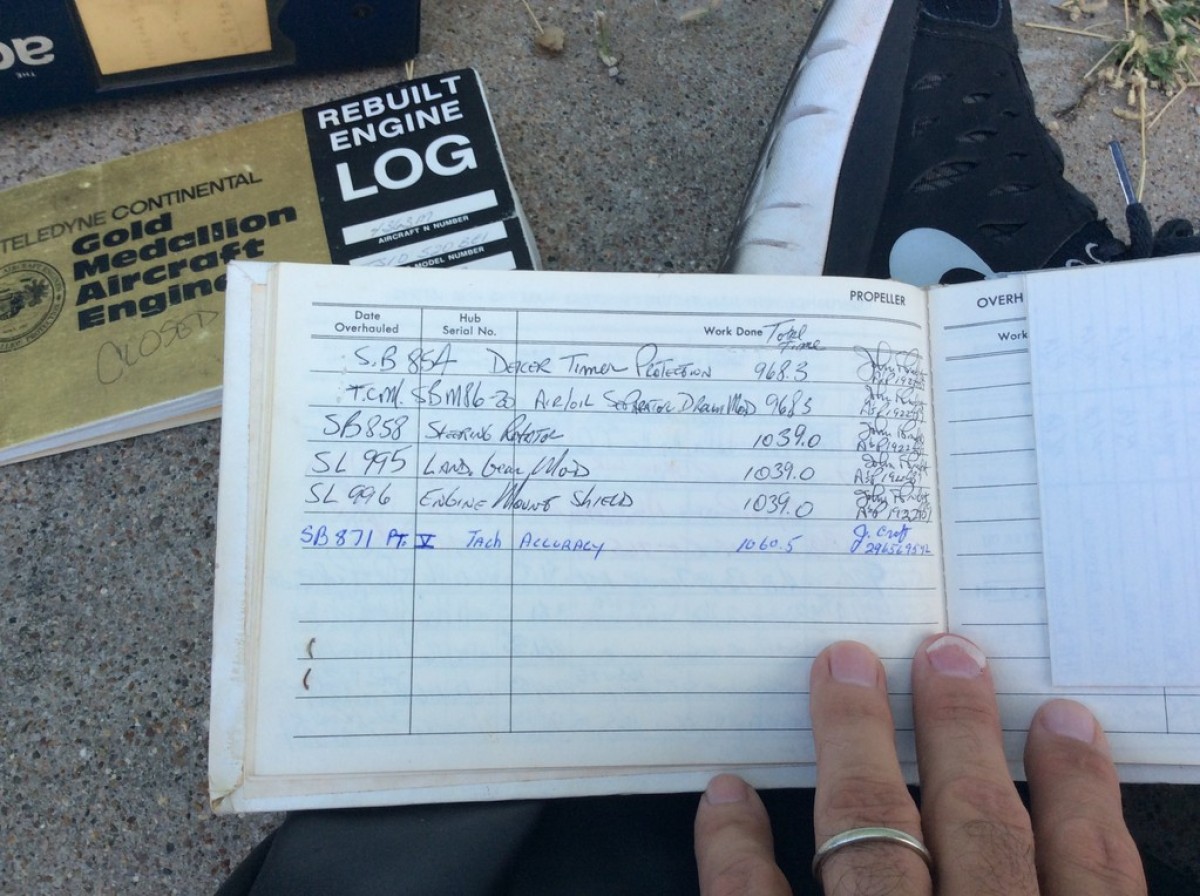 THE
REBUILT
ENGINE
LOG
AIRCRAFT N NUMBER
MODEL NUMBER
TELEDYNE CONTINENTAL
Gold
Medallion
Aircraft
Engine
CLOSED
PROPELLER
OVERH
Date Overhauled Hub Serial No. Work Done Total Time
Work
S.B 85A DEICER TIMER PROTECTION 968.3
T.C.M. SBM86-20 AIR/OIL SEPARATOR DRAIN MOD 968.3
SB858 STEERING ROTATOR 1039.0
SL 995 LAND. Gear MOD 1039.0
SL 996 ENGINE MOUNT SHIELD 1039.0
SB 871 PT. V Tach ACCURACY 1060.5